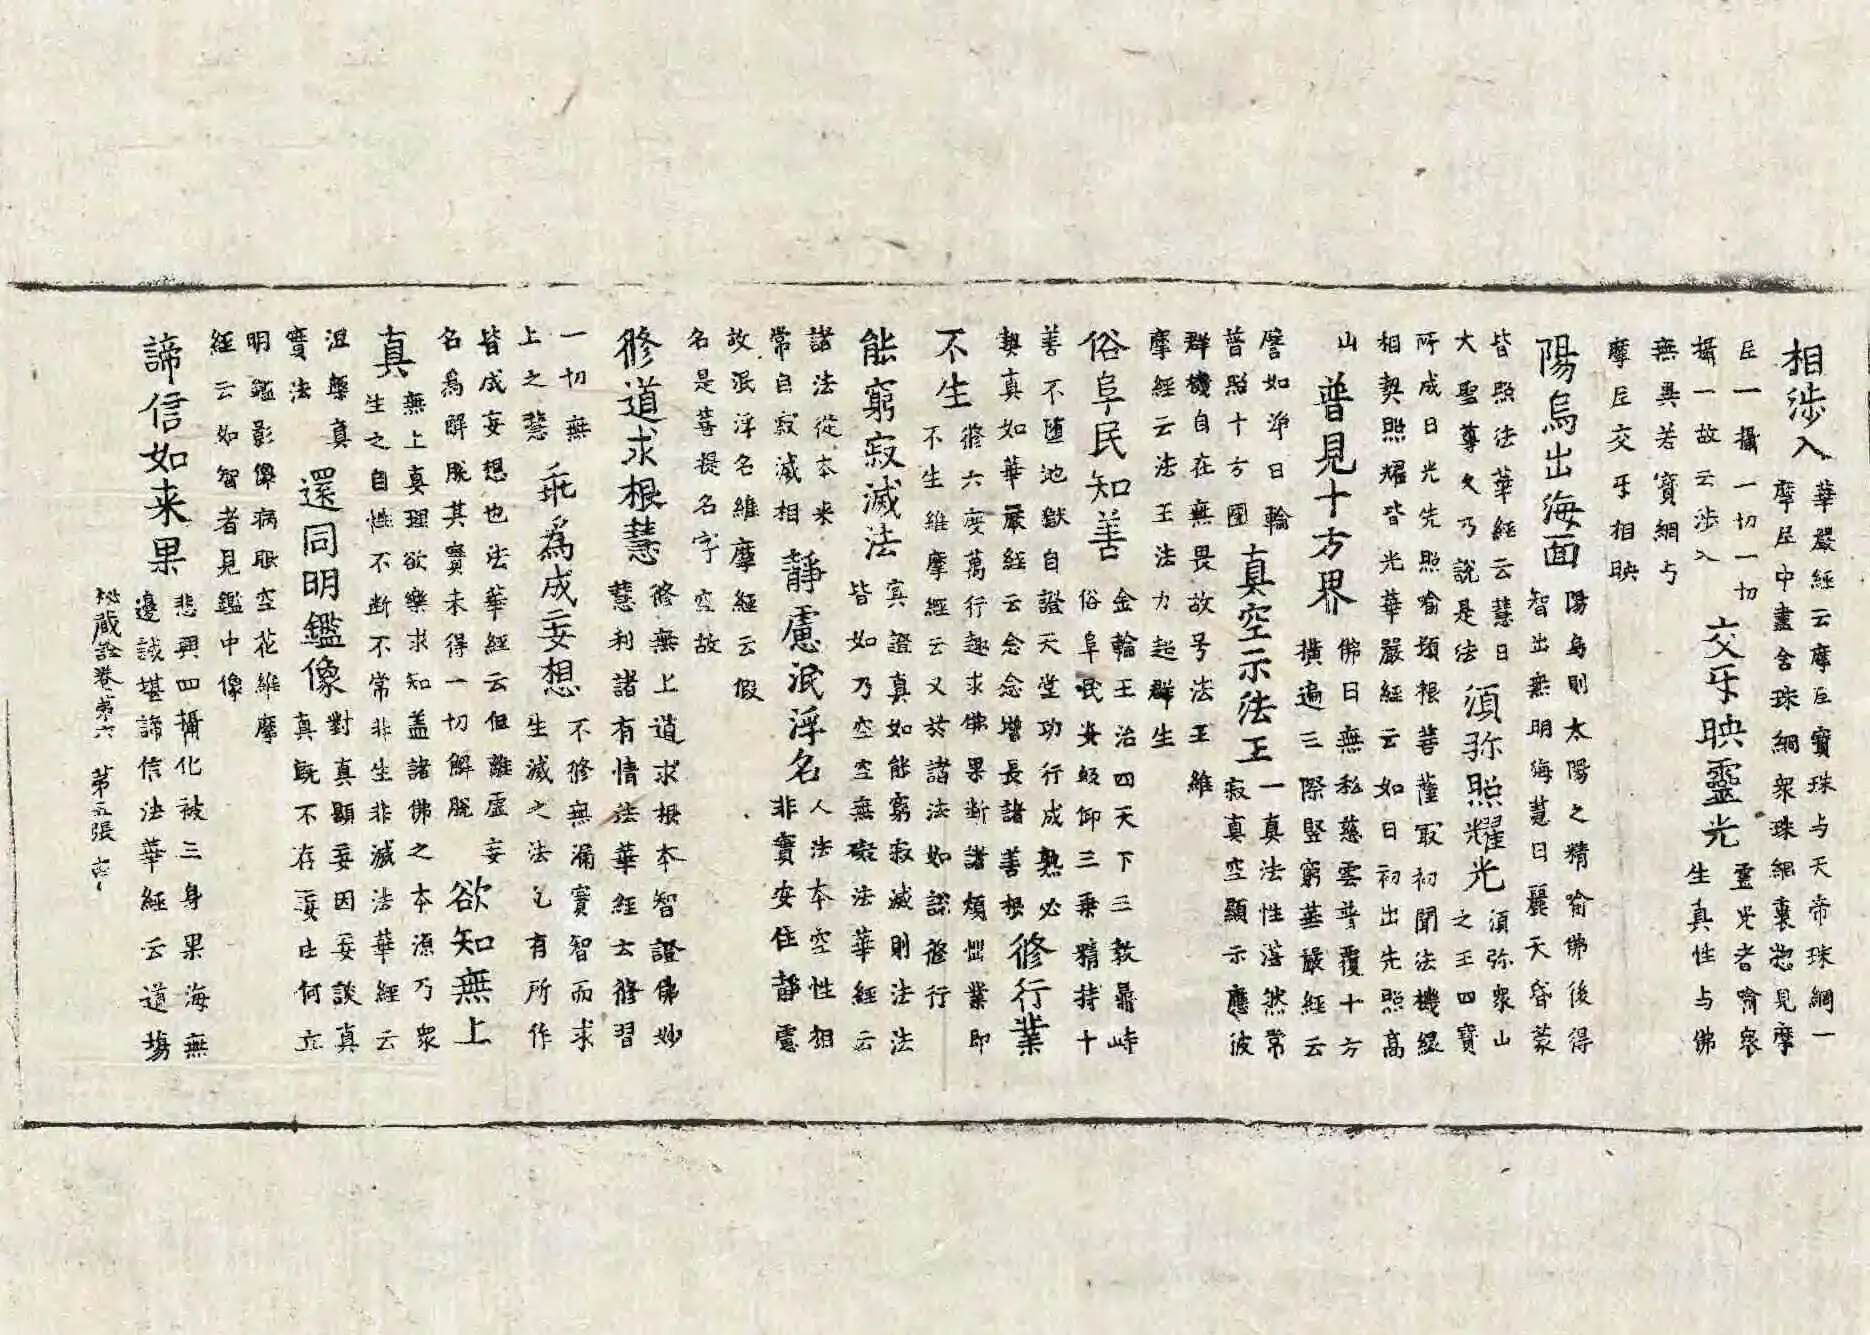 相涉入
華嚴經云摩尼寶珠与天帝珠網一
摩尼中盡含珠網衆珠網裏惣見摩
尼一攝一切一切
攝一故云涉入
交牙映靈光
靈光者喻衆
生真性与佛
無異若寶網与
摩尼交牙相映
陽烏出海面
陽烏則太陽之精喻佛後得
智出無明海慧日麗天昏蒙
皆照法華經云慧日
大聖尊久乃說是法
須弥照耀光
須弥衆山
之王四寶
所成日光先照喻頓根菩薩取初聞法機緣
相契照耀皆光華嚴經云如日初出先照高
山
普見十方界
佛日無私慈雲普覆十方
橫遍三際竪窮華嚴經云
譬如淨日輪
普照十方國
真空示法王
一真法性湛然常
寂真空顯示應彼
群機自在無畏故号法王維
摩經云法王法力超群生
俗阜民知善
金輪王治四天下三教鼎峙
俗阜民安瞻仰三乘精持十
善不墮地獄自證天堂功行成熟必
契真如華嚴經云念念增長諸善根
修行業
不生
修六度萬行趣求佛果斷諸煩惱業即
不生維摩經云又於諸法如說修行
能窮寂滅法
冥證真如能窮寂滅則法法
皆如乃空空無礙法華經云
諸法從本來
常自寂滅相
靜慮泯浮名
人法本空性相
非實安住靜慮
故泯浮名維摩經云假
名是菩提名字空故
修道求根慧
修無上道求根本智證佛妙
慧利諸有情法華經云修習
一切無
上之慧
乖爲成妄想
不修無漏實智而求
生滅之法乞有所作
皆成妄想也法華經云但離虛妄
名爲解脫其實未得一切解脫
欲知無上
真
無上真理欲樂求知盖諸佛之本源乃衆
生之自性不斷不常非生非滅法華經云
涅槃真
實法
還同明鑑像
對真顯妄因妄談真
真旣不存妄由何立
明鑑影像病眼空花維摩
經云如智者見鑑中像
諦信如来果
悲興四攝化被三身果海無
邊誠堪諦信法華經云道場
秘藏詮卷第六 第五張